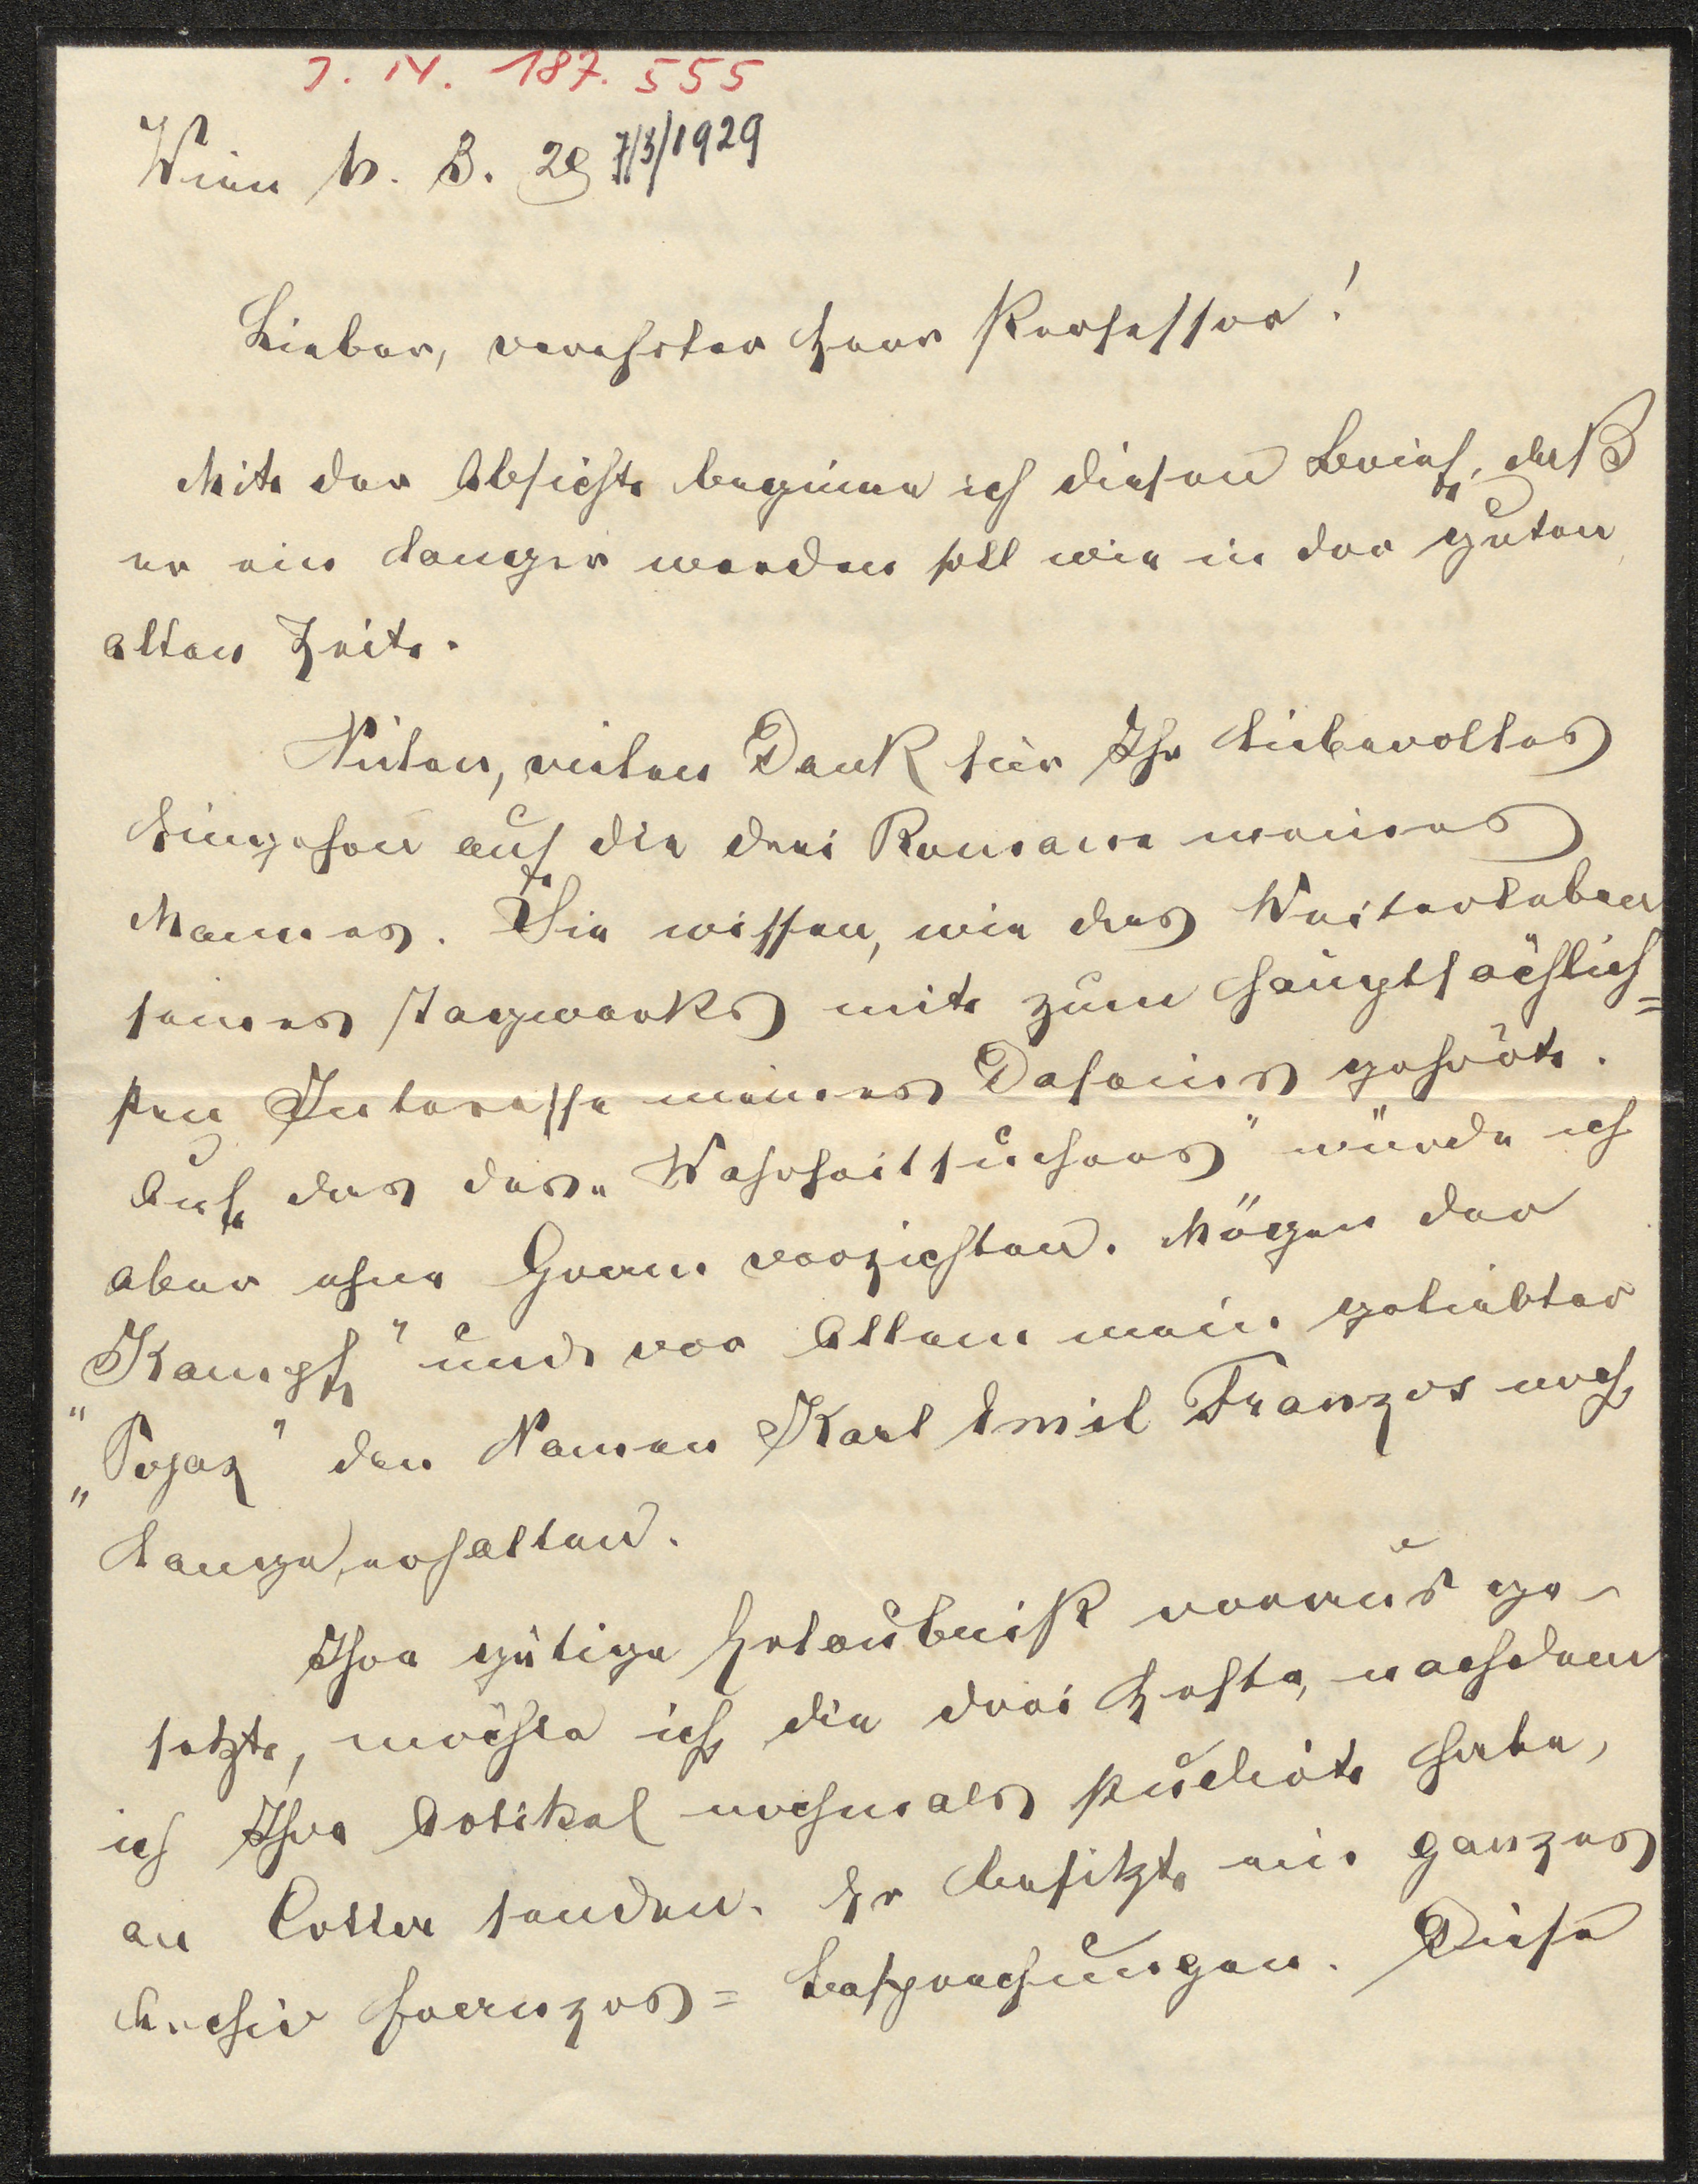 J. N. 187.555
Wien 6. 3. 29 7/3/1929
Lieber, verehrter Herr Professor!
Mit der Absicht beginne ich diesen Brief, daß
er ein langer werden soll wie in der guten
alten Zeit.
Vielen, vielen Dank für Ihr liebevolles
Eingehen auf die drei Romane meines
Mannes. Sie wissen, wie das Weiterleben
seines Tagwerks mit zum hauptsächlich=
sten Interesse meines Daseins gehört.
Auf das des „Wahrheitsuchers" würde ich
aber ohne Gram verzichten. Mögen der
„Kampf" und vor Allem mein geliebter
„Pojaz" den Namen Karl Emil Franzos noch
lange erhalten.
Ihre gütige Erlaubniß voraus ge-
setzt, möchte ich die drei Hefte, nachdem
ich Ihre Artikel nochmals studiert habe,
an Cotta senden. Er besitzt ein ganzes
Archiv Franzos = Besprechungen. Diese